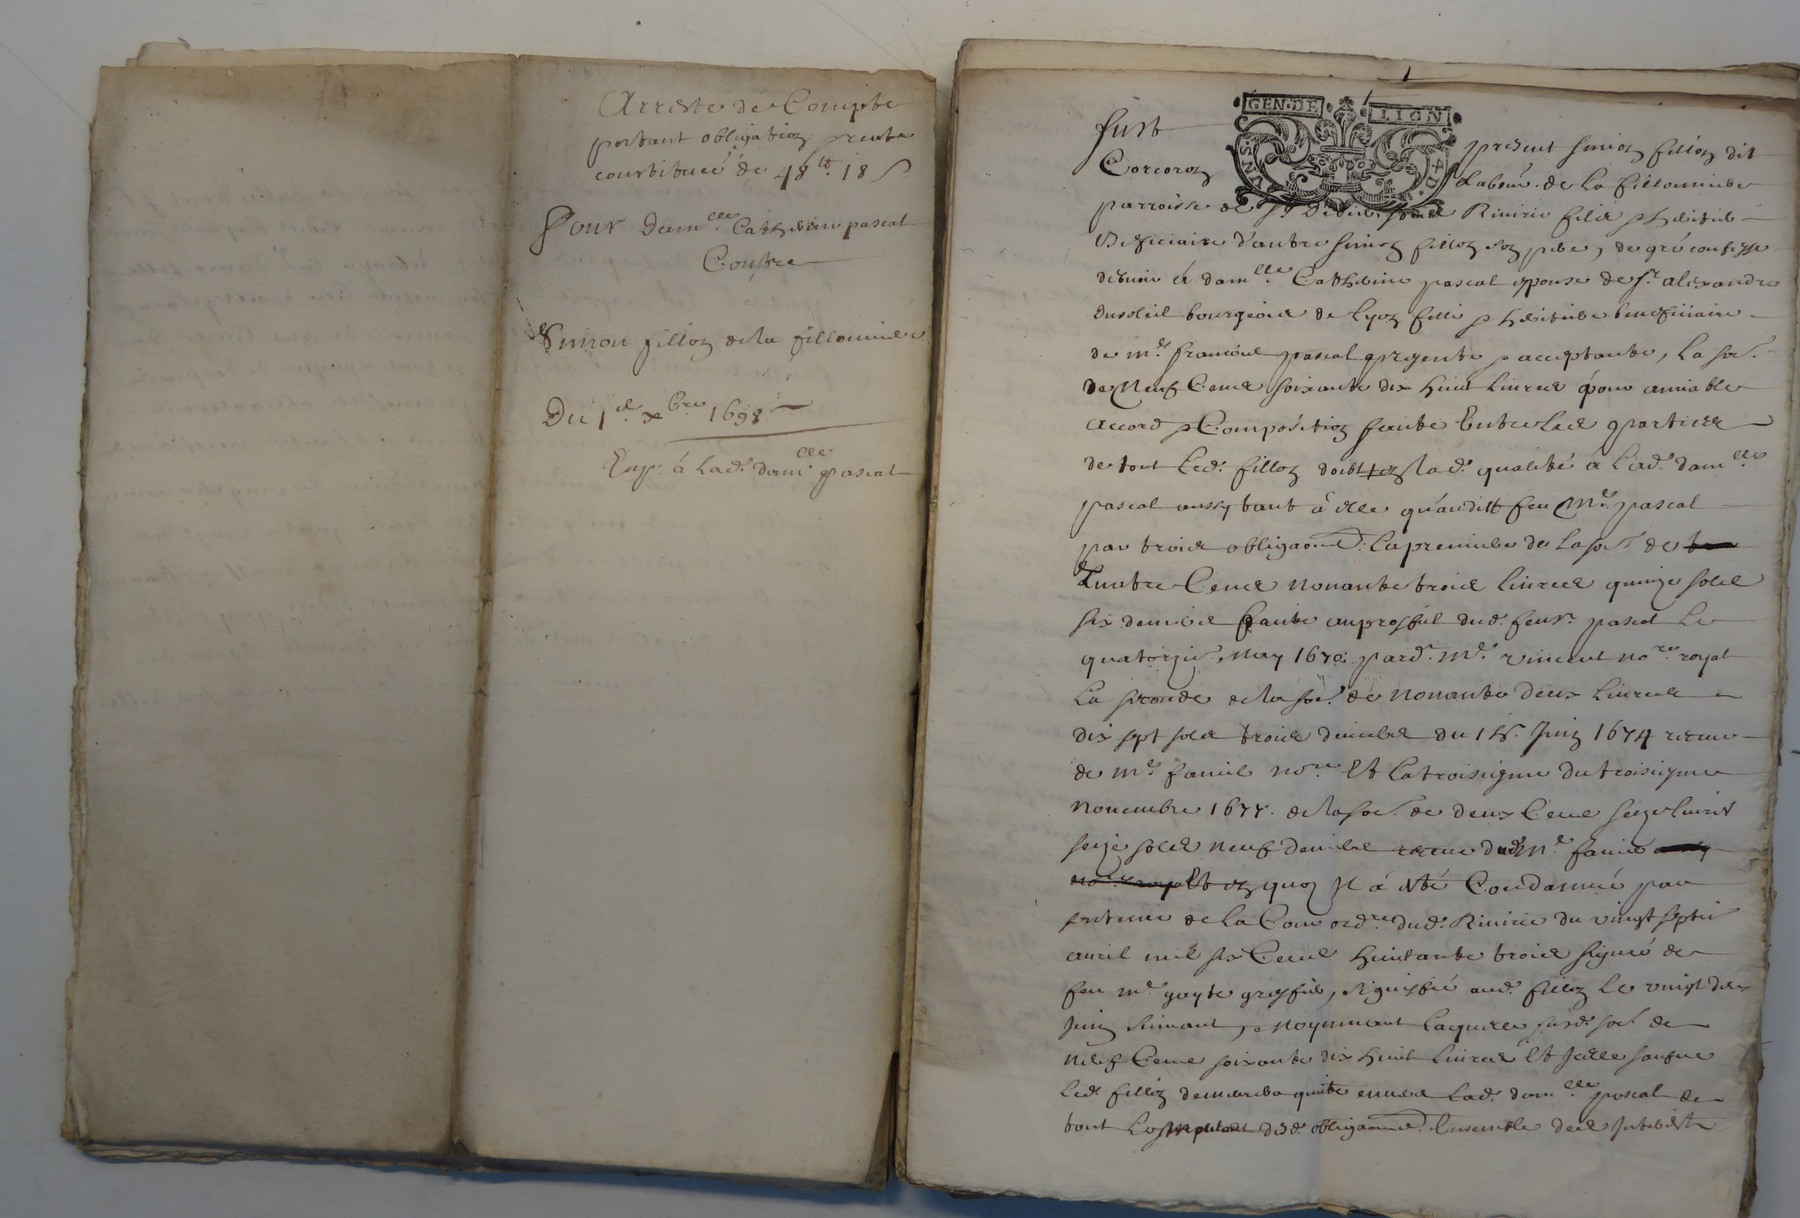 Arresté de Compte
portant obligation & rente
constituée de 48tt. 18 s
Pour damlle. Catherine pascal
Contre
Simon fillon de la fillonniere
Du 1er xbre 1698
Exp. à lad. damlle pascal
GEN. DE LION
Fust present Simon fillon dit
Corcoron Labour. de la fillonniere
parroisse de St Didier soubz Riverie filz & heritier
Beneficiaire d'autre Simon fillon son pere, de gré confesse
debvoir à damlle Catherine pascal espouse de Sr. alexandre
dusoleil bourgeois de Lyon fille & heritiere beneficiaire
de Me. francois pascal presente & acceptante, la so.e
de Neuf Cens soixante dix huit livres pour amiable
accord & Composition faicte Entre les parties
de tout led. fillon doibt en lad. qualité à lad. damlle
pascal aussy tant à elle qu'audit feu Me. pascal
par trois obliga.ons: la premiere de la so.e de
Quatre Cens nonante trois livres quinze solz
six deniers faicte au proffit dud. feu sr. pascal le
quatorzie. may 1670. pard. Me. vincent nore. royal
La seconde de la so.e de nonante deux livres
dix sept solz trois deniers du 15e. Juin 1674 receue
de Me. favier nore. Et la troisiesme du troisiesme
Novembre 1677. de la so.e de deux Cens seize livres
seize solz neuf deniers receue dud. Me. favier
Et en quoy Il à esté Condamné par
sentence de la Cour ordre. dud. Riverie du vingt septie
avril mil six Cens huictante trois signée de
feu Me. guyte greffier, signiffiée aud. fillon le vingt deux
Juin suivant, & moyennant laquelle susd. so.e de
neuf Cens soixante dix huit livres Et Icelle sauve
led. fillon demeurera quitte envers lad. damlle pascal de
tout le desd. obliga.ons Ensemble des Interests